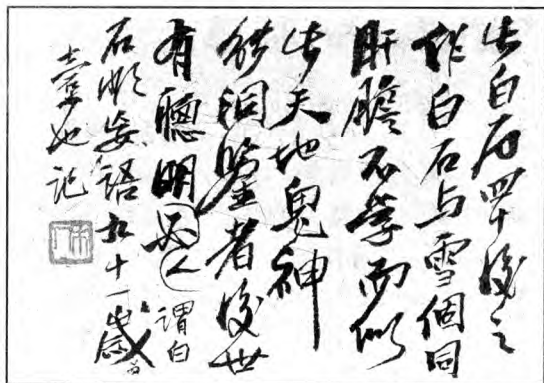 此白石四十後之
作白石与雪個同
肝膽不學而似
此天地鬼神
能洞鑒者後世
有聰明人謂白
石 妄語九十一歲
京也記